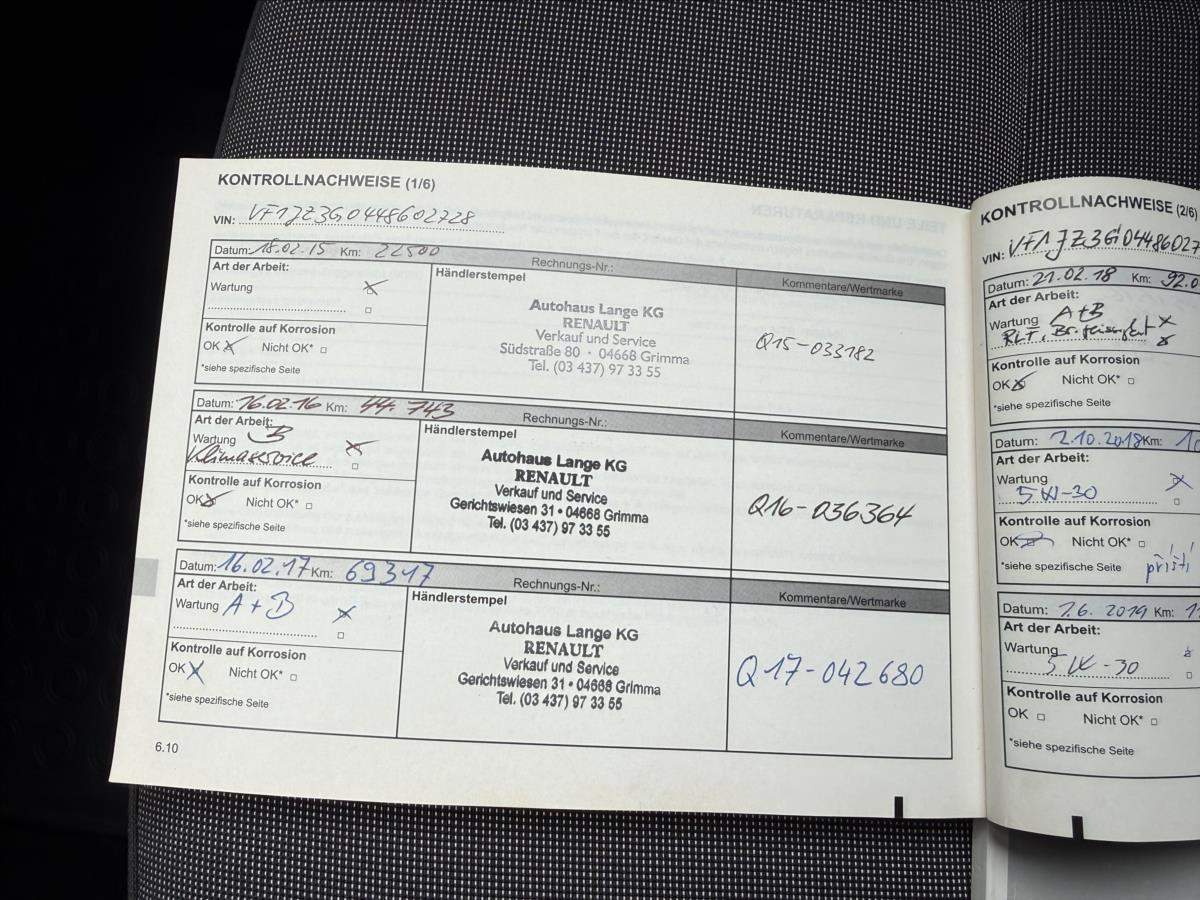 KONTROLLNACHWEISE (1/6)
VIN: VF1JZ3G0448602728
Datum: 18.02.15 Km: 22500
Rechnungs-Nr.:
Art der Arbeit:
Händlerstempel
Kommentare/Wertmarke
Wartung
Kontrolle auf Korrosion
OK Nicht OK*
*siehe spezifische Seite
Autohaus Lange KG
RENAULT
Verkauf und Service
Südstraße 80 · 04668 Grimma
Tel. (03 437) 97 33 55
Q15-033182
Datum: 16.02.16 Km: 44.743
Rechnungs-Nr.:
Art der Arbeit:
Händlerstempel
Kommentare/Wertmarke
Wartung B
Klimaservice
Kontrolle auf Korrosion
OK Nicht OK*
*siehe spezifische Seite
Autohaus Lange KG
RENAULT
Verkauf und Service
Gerichtswiesen 31 • 04668 Grimma
Tel. (03 437) 97 33 55
Q16-036364
Datum: 16.02.17 Km: 69317
Rechnungs-Nr.:
Art der Arbeit:
Händlerstempel
Kommentare/Wertmarke
Wartung A + B
Kontrolle auf Korrosion
OK Nicht OK*
*siehe spezifische Seite
Autohaus Lange KG
RENAULT
Verkauf und Service
Gerichtswiesen 31 • 04668 Grimma
Tel. (03 437) 97 33 55
Q17-042680
6.10
KONTROLLNACHWEISE (2/6)
VIN: VF1JZ3G04486027
Datum: 21.02.18 Km: 92.0
Art der Arbeit:
Wartung A+B
RLT,
Kontrolle auf Korrosion
OK Nicht OK*
*siehe spezifische Seite
Datum: 2.10.2018 Km: 10
Art der Arbeit:
Wartung
5W-30
Kontrolle auf Korrosion
OK Nicht OK*
*siehe spezifische Seite příští
Datum: 7.6. 2019 Km: 11
Art der Arbeit:
Wartung
5W-30
Kontrolle auf Korrosion
OK Nicht OK*
*siehe spezifische Seite